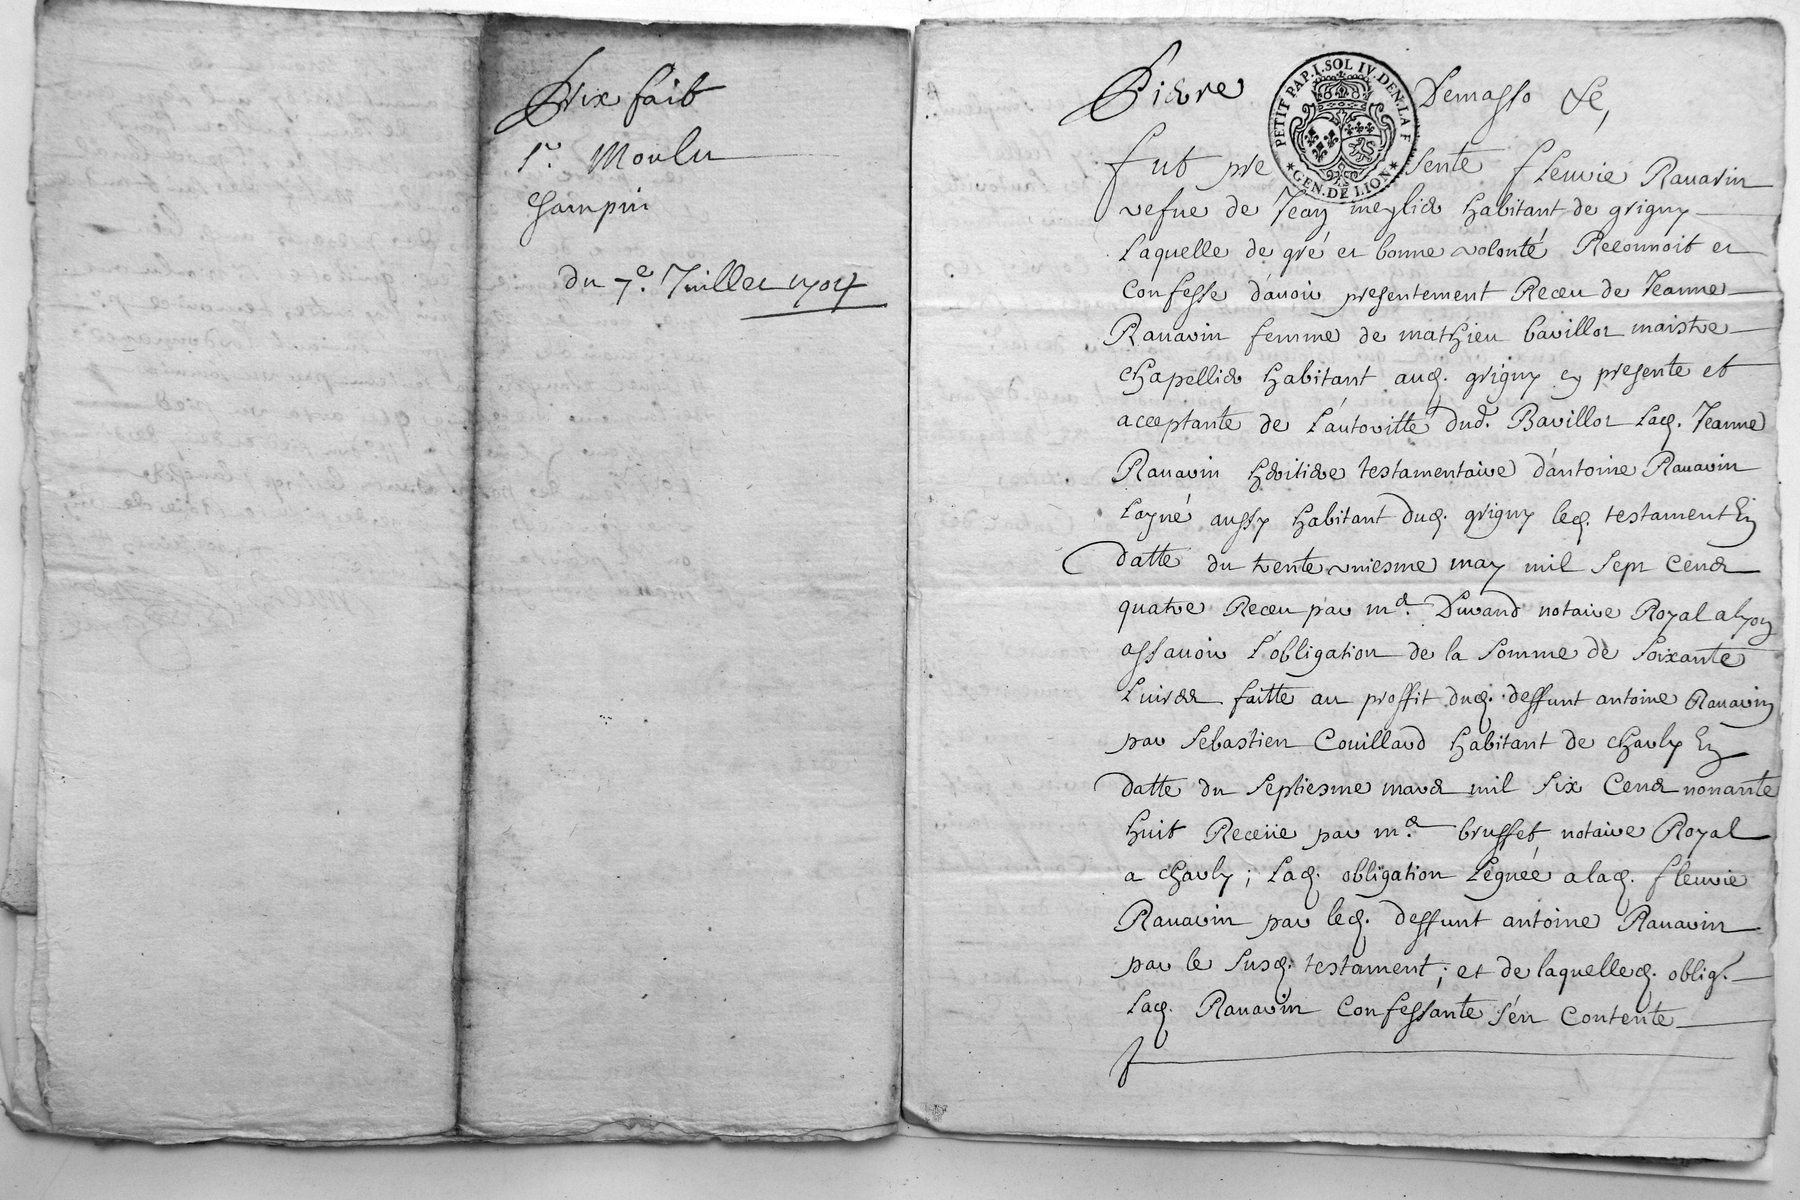 Prix fait
Sr. Moulin
Champin
du 7e. Juillet 1704
Pierre Demasso &c,
PETIT PAP. I. SOL IV. DEN. LA F
GEN. DE LION
fut presente fleurie Rauarin
vefue de Jean meylier habitant de grigny
Laquelle de gré et bonne volonté Reconnoit et
Confesse d'auoir presentement Receu de Jeanne
Rauarin femme de mathieu bavillot maistre
chapellier habitant aud. grigny cy presente et
acceptante de L'autoritté dud. Bavillot Lad. Jeanne
Rauarin heritiere testamentaire d'antoine Rauarin
Layné aussy habitant dud. grigny led. testament En
datte du trente vniesme may mil sept Cent
quatre Receu par me. Durand notaire Royal a lyon
assauoir L'obligation de la Somme de Soixante
Liures faitte au proffit dud. deffunt antoine Rauarin
par Sebastien Couillard habitant de charly En
datte du Septiesme mars mil Six Cent nonante
huit Receüe par me. brusset notaire Royal
a charly ; Lad. obligation Léguée a lad. fleurie
Rauarin par led. deffunt antoine Rauarin
par le Susd. testament ; et de laquelled. oblig.
Lad. Rauarin Confessante s'en Contente